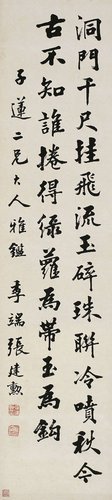 洞門千尺挂飛流玉碎珠聯冷噴秋今
古不知誰捲得綠蘿為帶玉為鈎
子蓮二兄大人雅鑑
季端張建勳